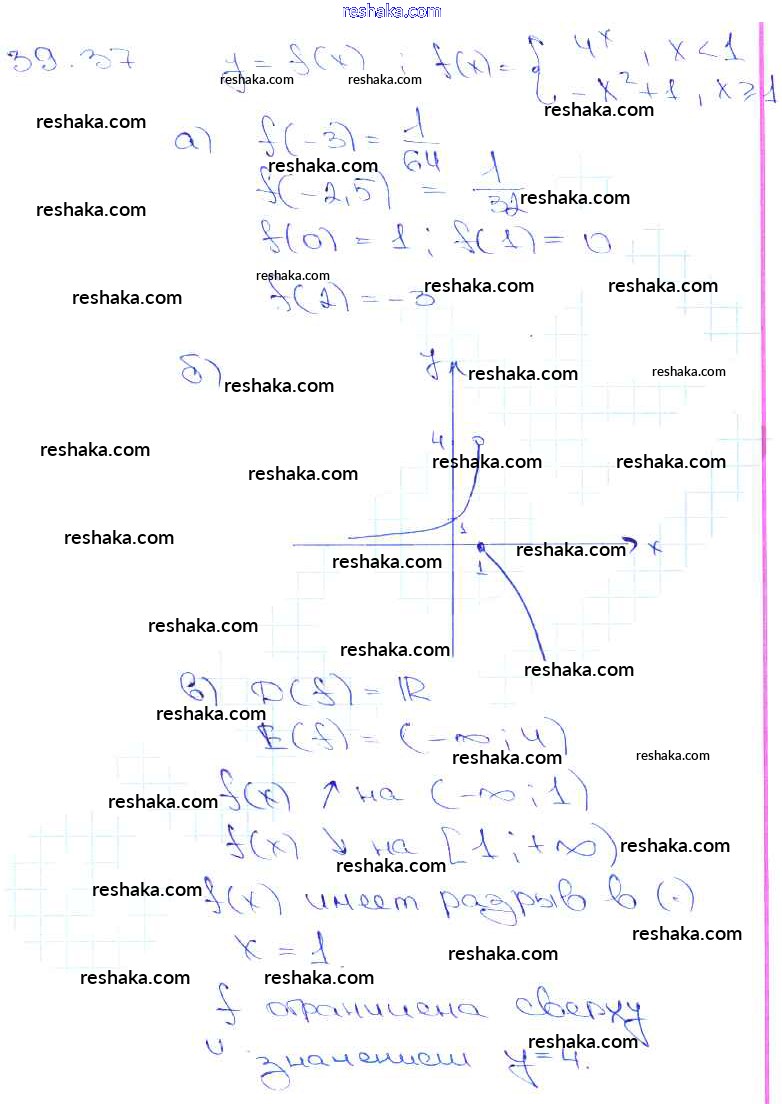 reshaka.com
39.37 y = f(x) ; f(x) = { 4^x, x < 1
-x²+1, x ≥ 1
reshaka.com reshaka.com reshaka.com
reshaka.com
а) f(-3) = 1/64
reshaka.com
f(-2,5) = 1/32
reshaka.com reshaka.com
f(0) = 1 ; f(1) = 0
reshaka.com reshaka.com reshaka.com
reshaka.com
f(2) = -3
б) y
reshaka.com reshaka.com reshaka.com
4
reshaka.com reshaka.com reshaka.com
reshaka.com
1
reshaka.com reshaka.com x
reshaka.com
1
reshaka.com
reshaka.com
reshaka.com
в) D(f) = ℝ
reshaka.com
E(f) = (-∞; 4)
reshaka.com reshaka.com
f(x) ↑ на (-∞; 1)
reshaka.com
f(x) ↓ на [1; +∞)
reshaka.com
reshaka.com
reshaka.com
f(x) имеет разрыв в (·)
reshaka.com
x = 1.
reshaka.com
reshaka.com reshaka.com
f ограничена сверху
reshaka.com
значением y = 4.